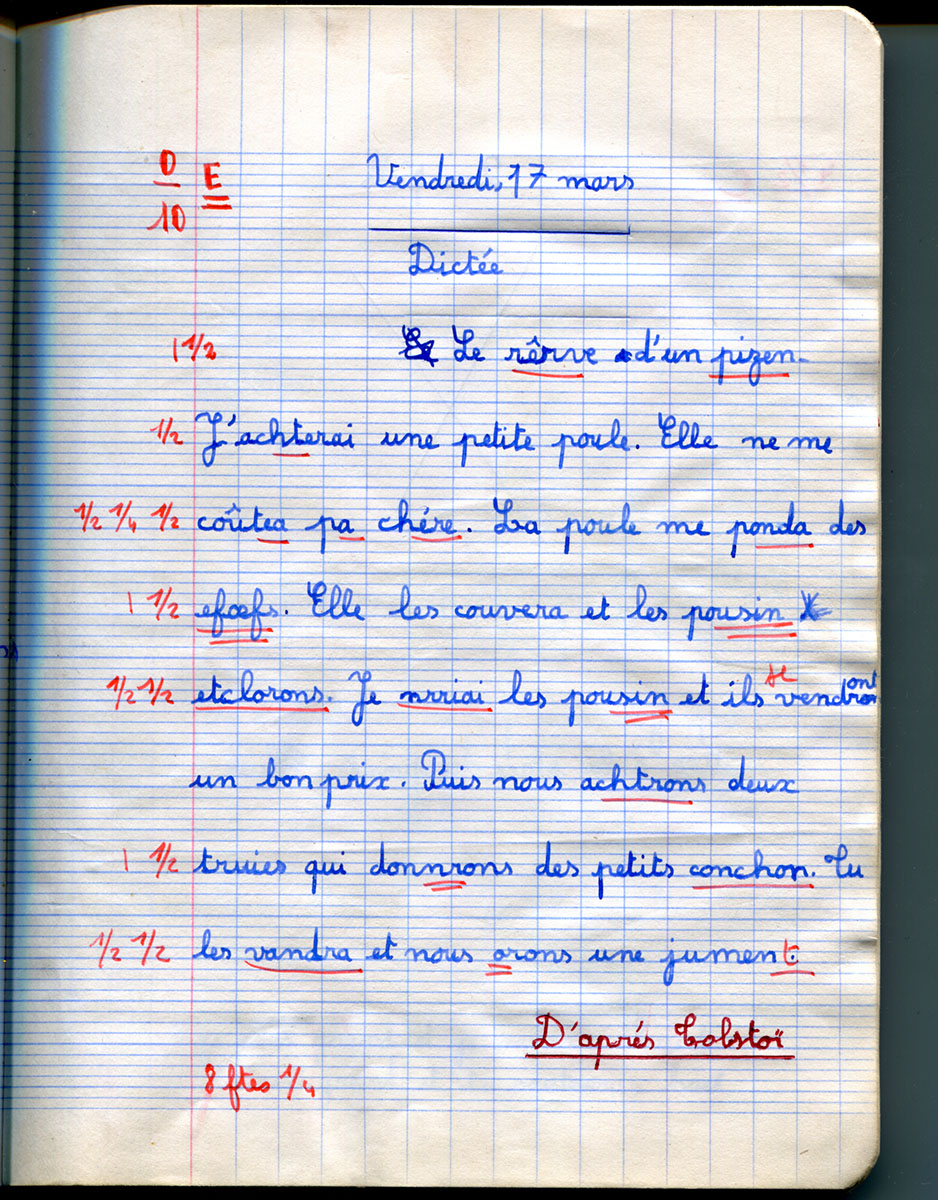 0 E Vendredi, 17 mars
10
Dictée
1 1/2 Le rêrve d'un pizen.
1/2 J'achterai une petite poule. Elle ne me
1/2 1/4 1/2 coûtea pa chére. La poule me ponda des
1 1/2 efœfs. Elle les couvera et les pousin
1/2 1/2 etclorons. Je nrriai les pousin et ils se vendront
un bon prix. Puis nous achtrons deux
1 1/2 truies qui donnrons des petits conchon. Tu
1/2 1/2 les vandra et nous orons une jument.
D'aprés Tolstoï
8 ftes 1/4